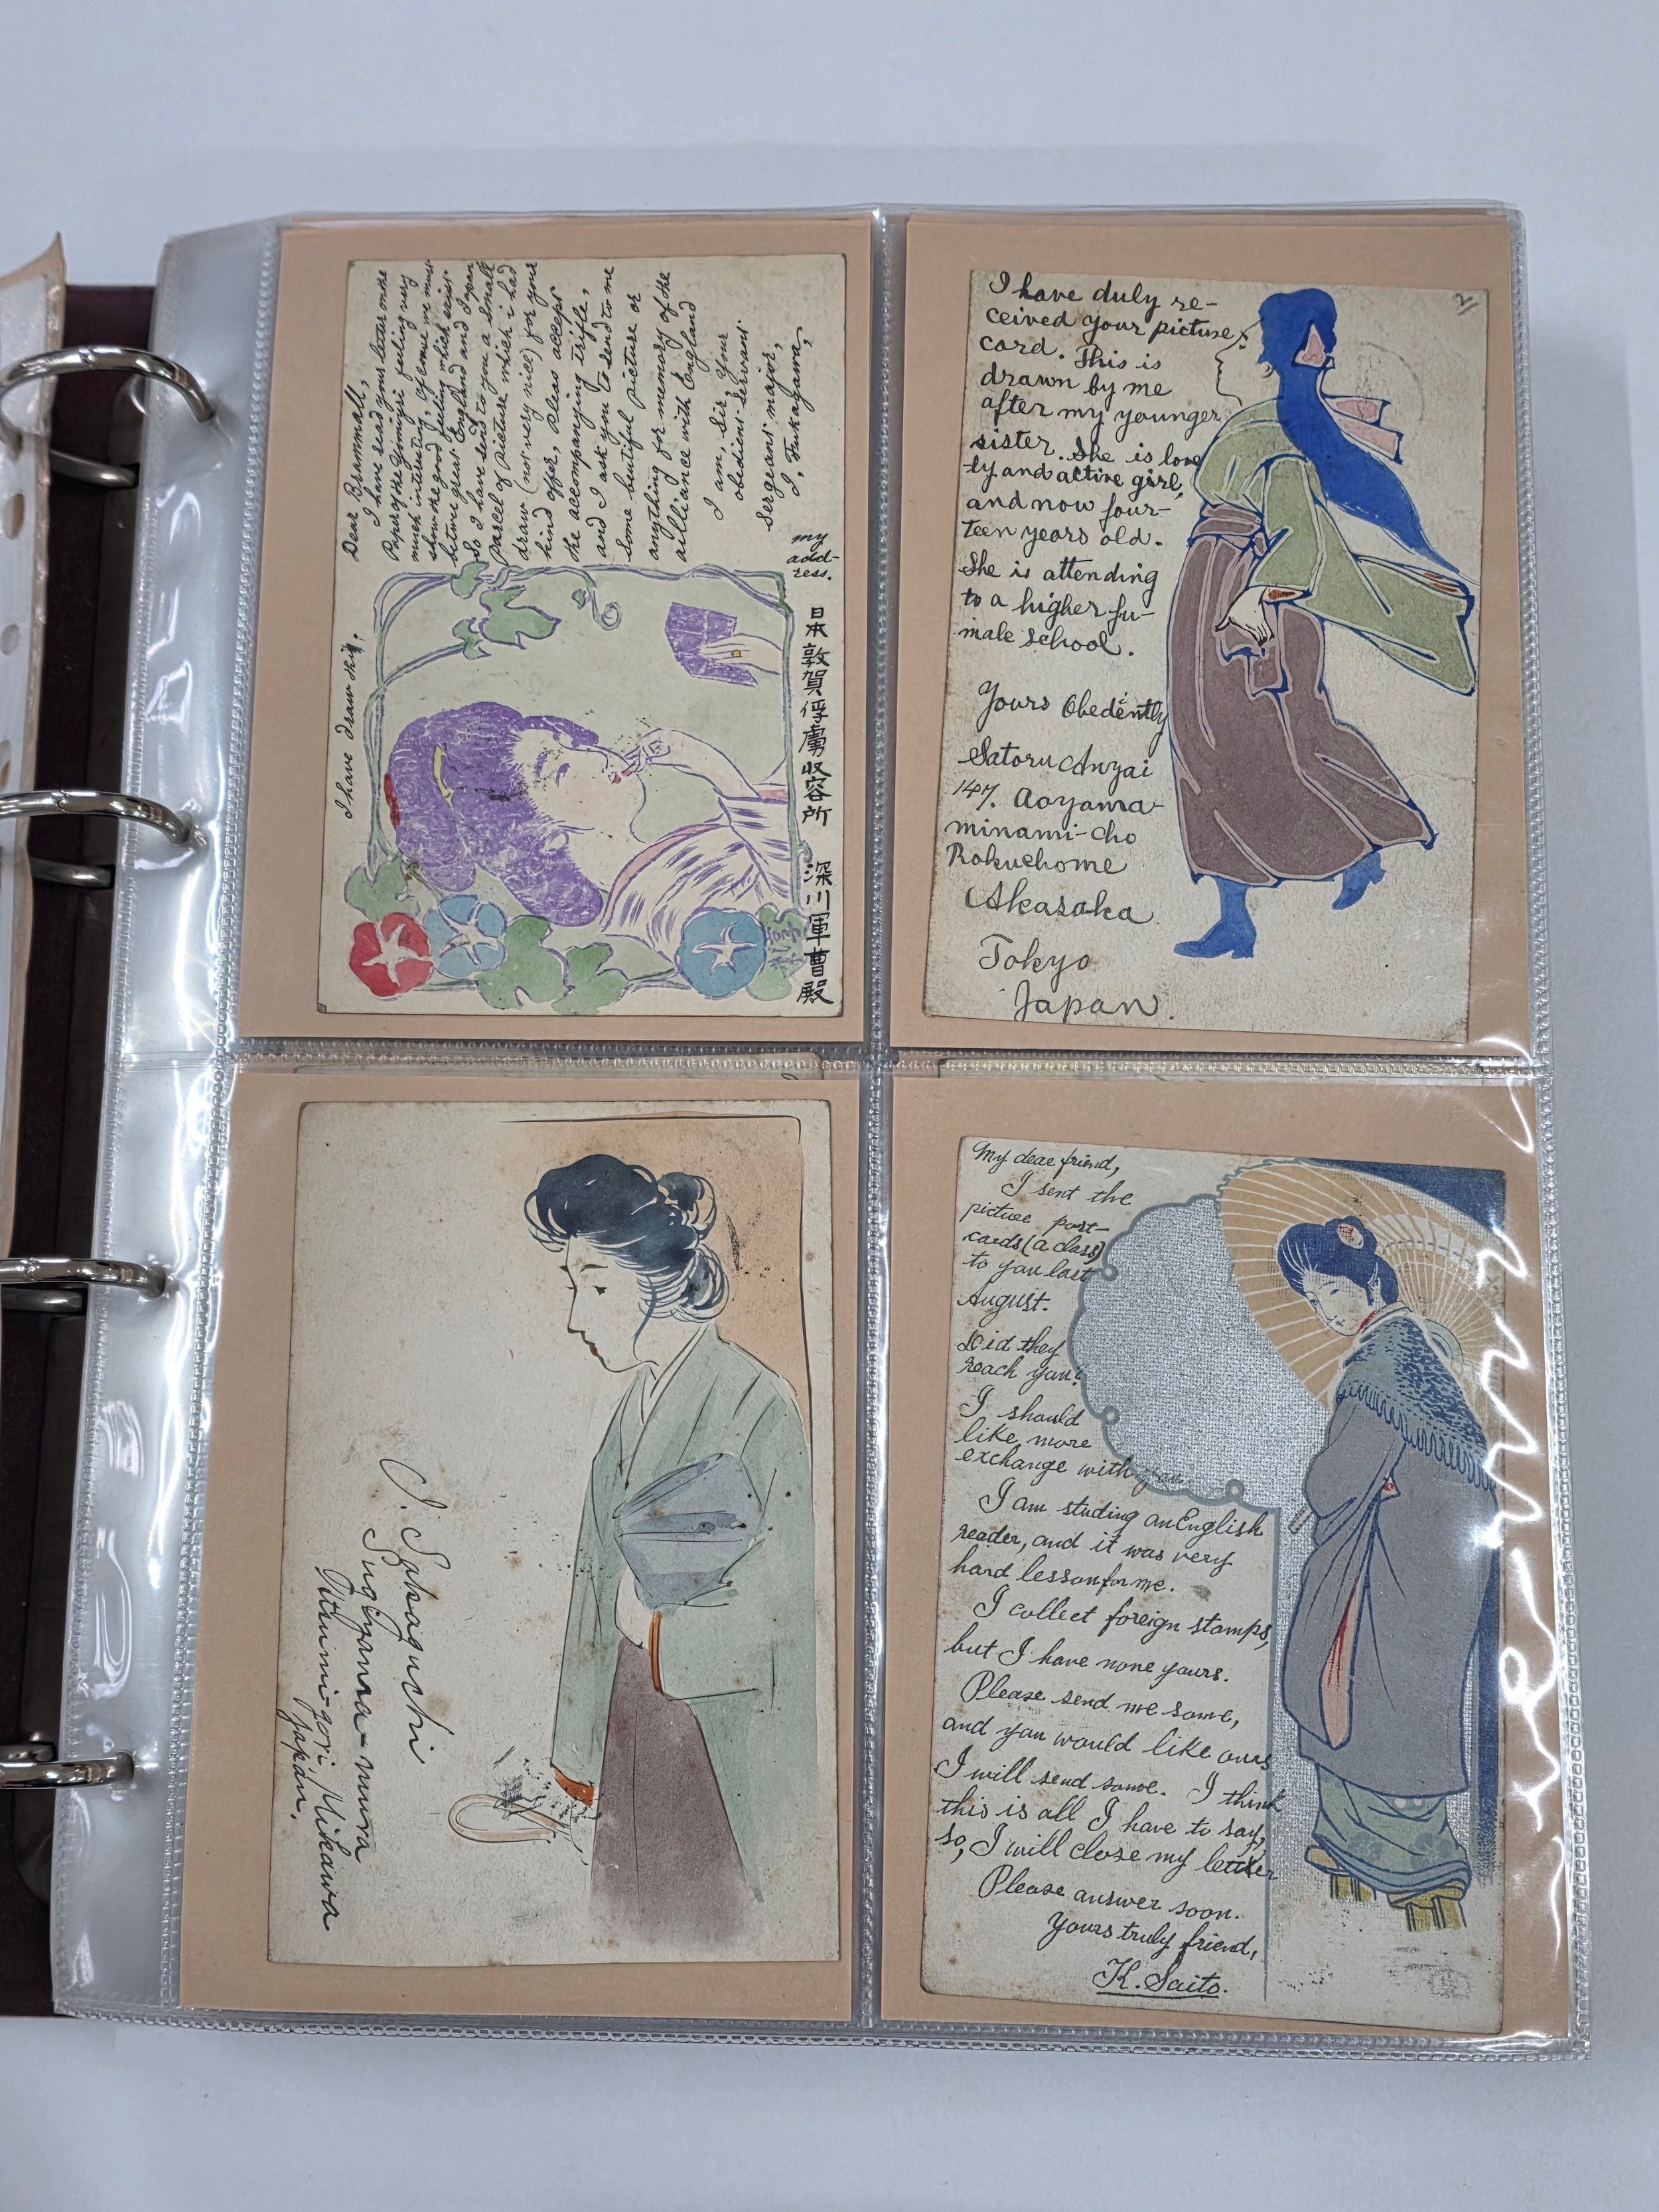 Dear Brammall,
I have read your letter on the
Paper of the Yomiyri feeling very
much intersting, Ofcome we must
show the good feeling which exist
betwne great England and Japan
So I have send to you a small
parcel of picture which i had
draw (not very nice) for your
kind offer, Pleas accept
the accompanying trifle,
and I ask you to send to me
some beutiful picture or
anytling for memory of the
ailliance with England
I am, Sir, Your
obedient servant
Sergeant major,
I, Fukagawa,
I have draw this,
my
add-
ress.
日本敦賀俘虜収容所 深川軍曹殿
I have duly re-
ceived your picture
card. This is
drawn by me
after my younger
sister. She is love
ly and active girl,
and now four-
teen years old.
She is attending
to a higher fu-
male school.
Yours Obedently
Satoru Anzai
147. Aoyama-
minami-cho
Rokuchome
Akasaka
Tokyo
Japan.
J. Sakaguchi
Sugiyama-mura
Atsumi-gori, Mikawa
Japan.
My dear friend,
I sent the
picture post-
cards (a class)
to you last
August.
Did they
reach you?
I should
like more
exchange with you.
I am studing an English
reader, and it was very
hard lesson for me.
I collect foreign stamps,
but I have none yours.
Please send me some,
and you would like ours
I will send some. I think
this is all I have to say,
so, I will close my letter
Please answer soon.
Yours truly friend,
K. Saito.